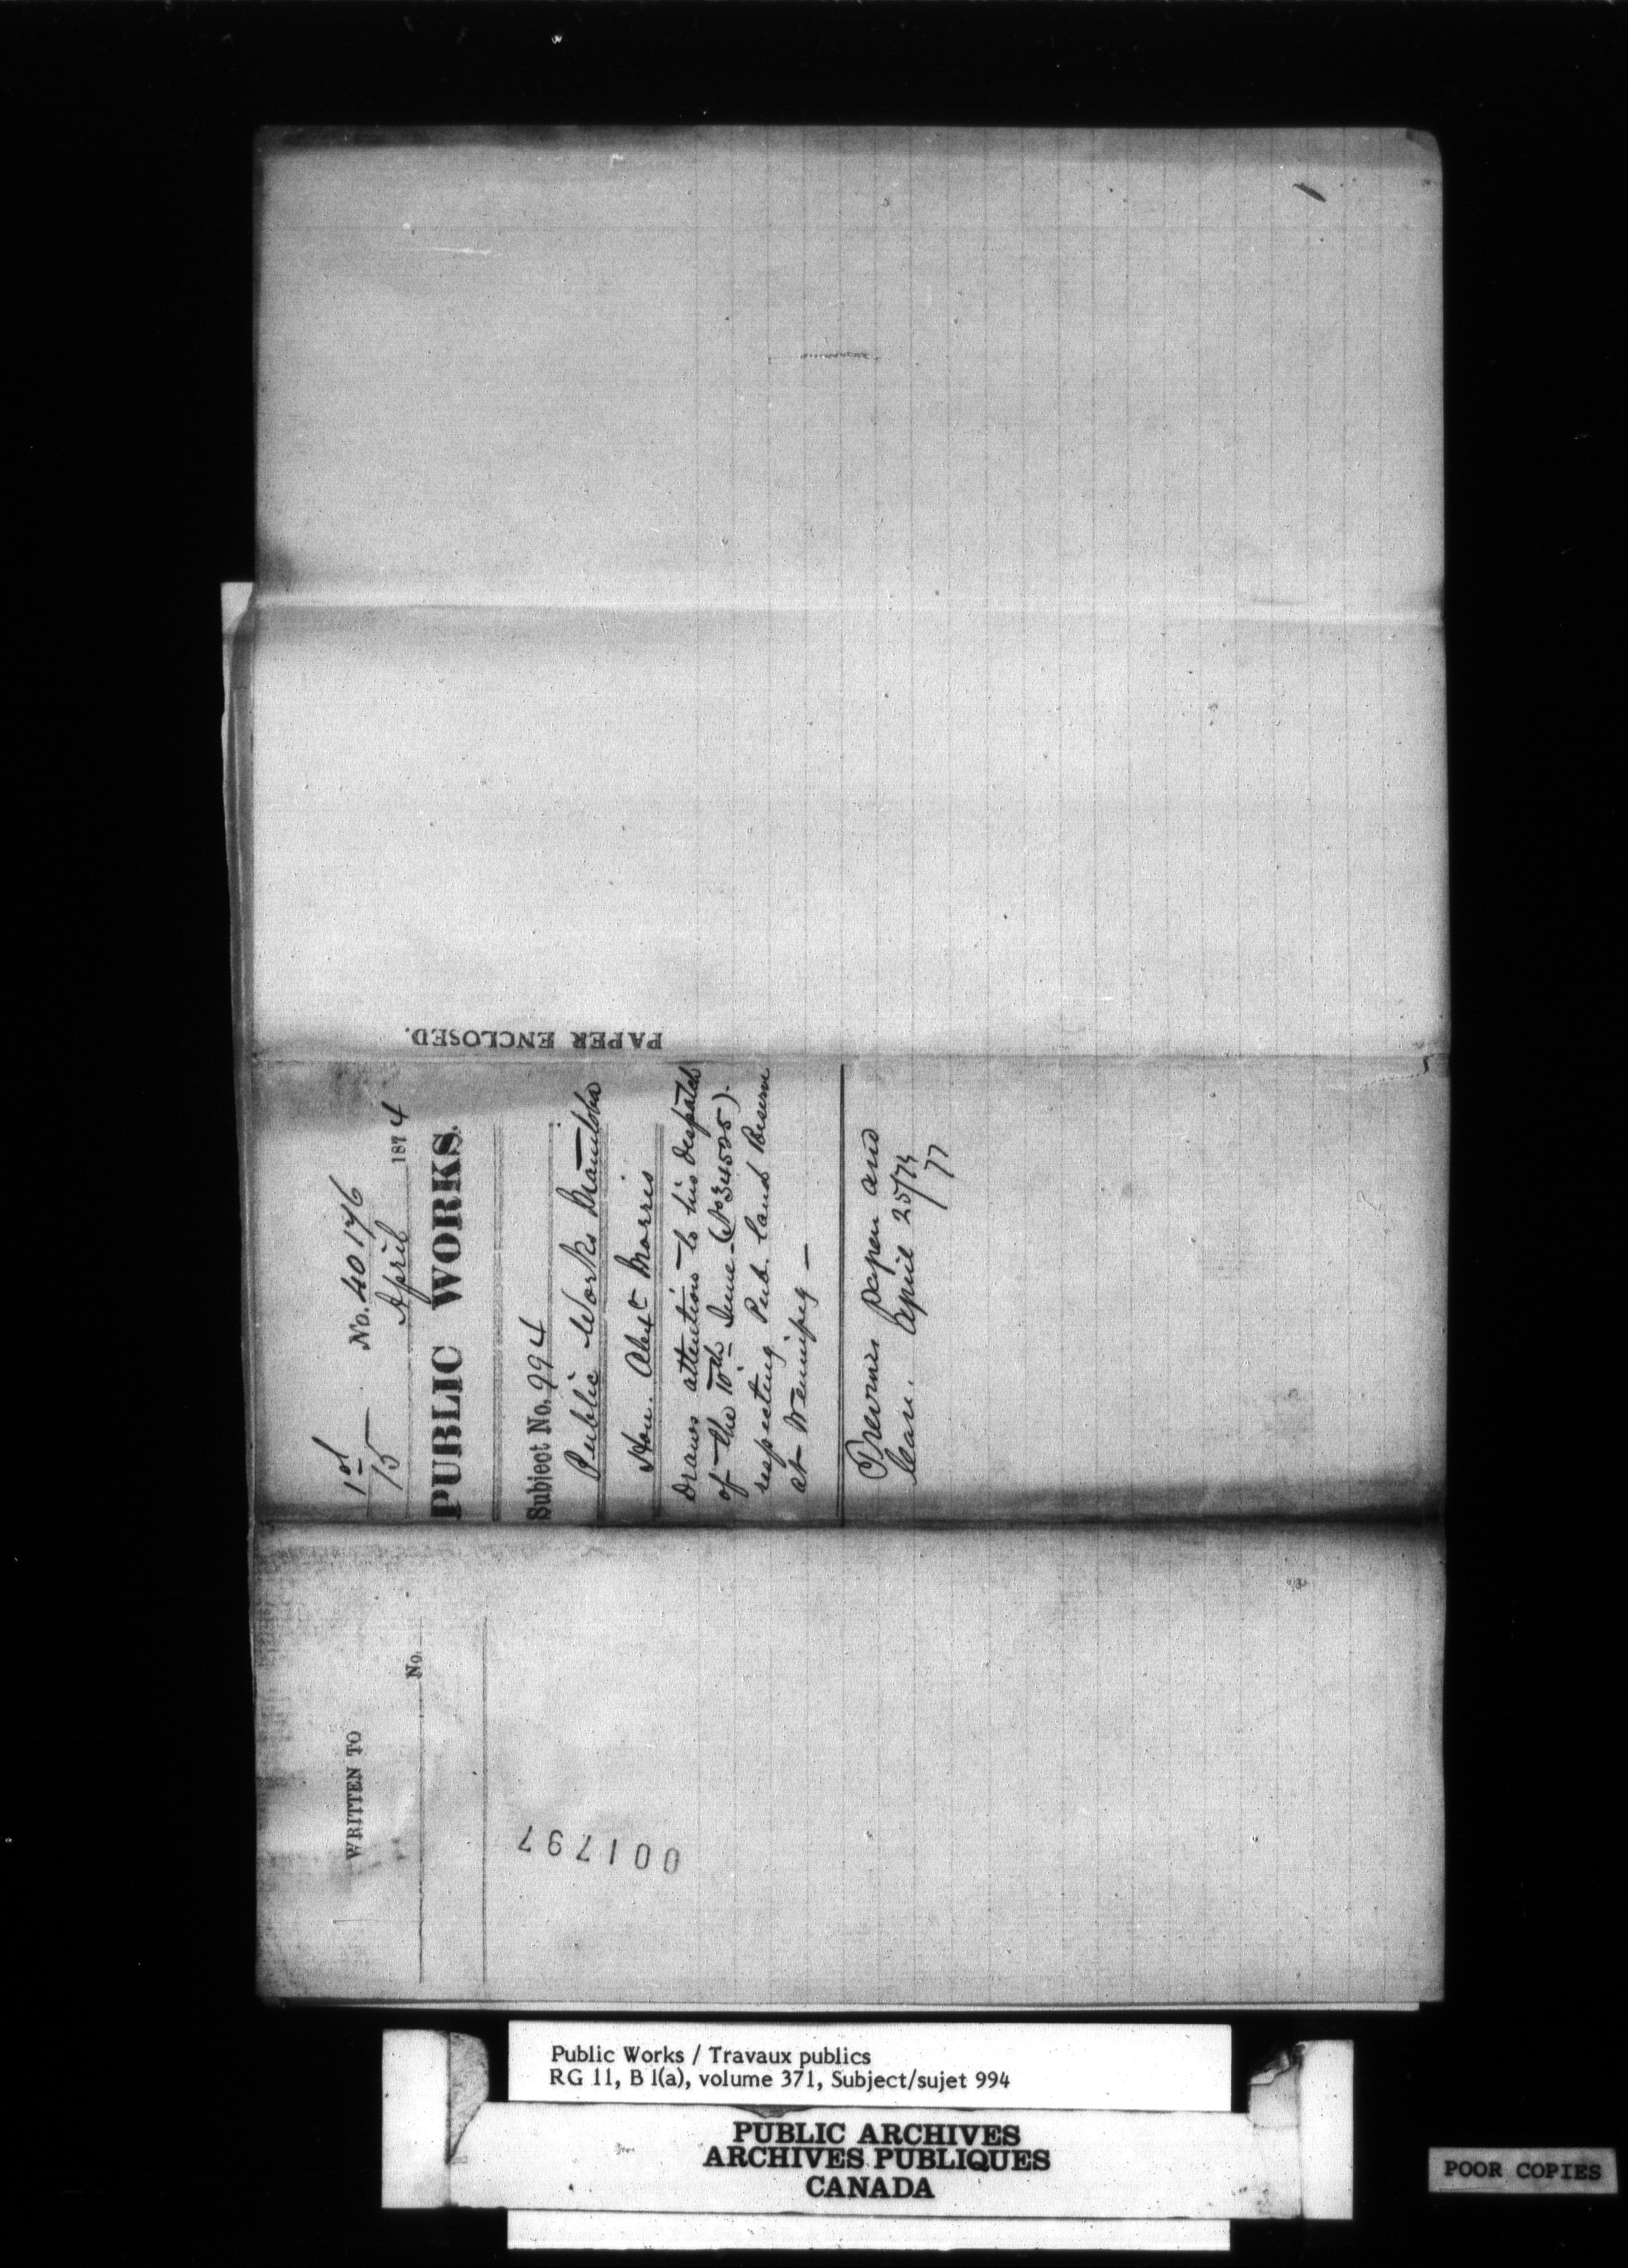 1st
15 No. 40176
April 1874
PUBLIC WORKS.
Subject No. 994
Public Works Manitoba
Hon. Alexr Morris
Draws attention to his despatch
of the 10th June (No 34505).
respecting Pub. Land Reserve
at Winnipeg —
Previous paper and
April 25/74
77
PAPER ENCLOSED.
WRITTEN TO
No.
001797
Public Works / Travaux publics
RG 11, B 1(a), volume 371, Subject/sujet 994
PUBLIC ARCHIVES
ARCHIVES PUBLIQUES
CANADA
POOR COPIES